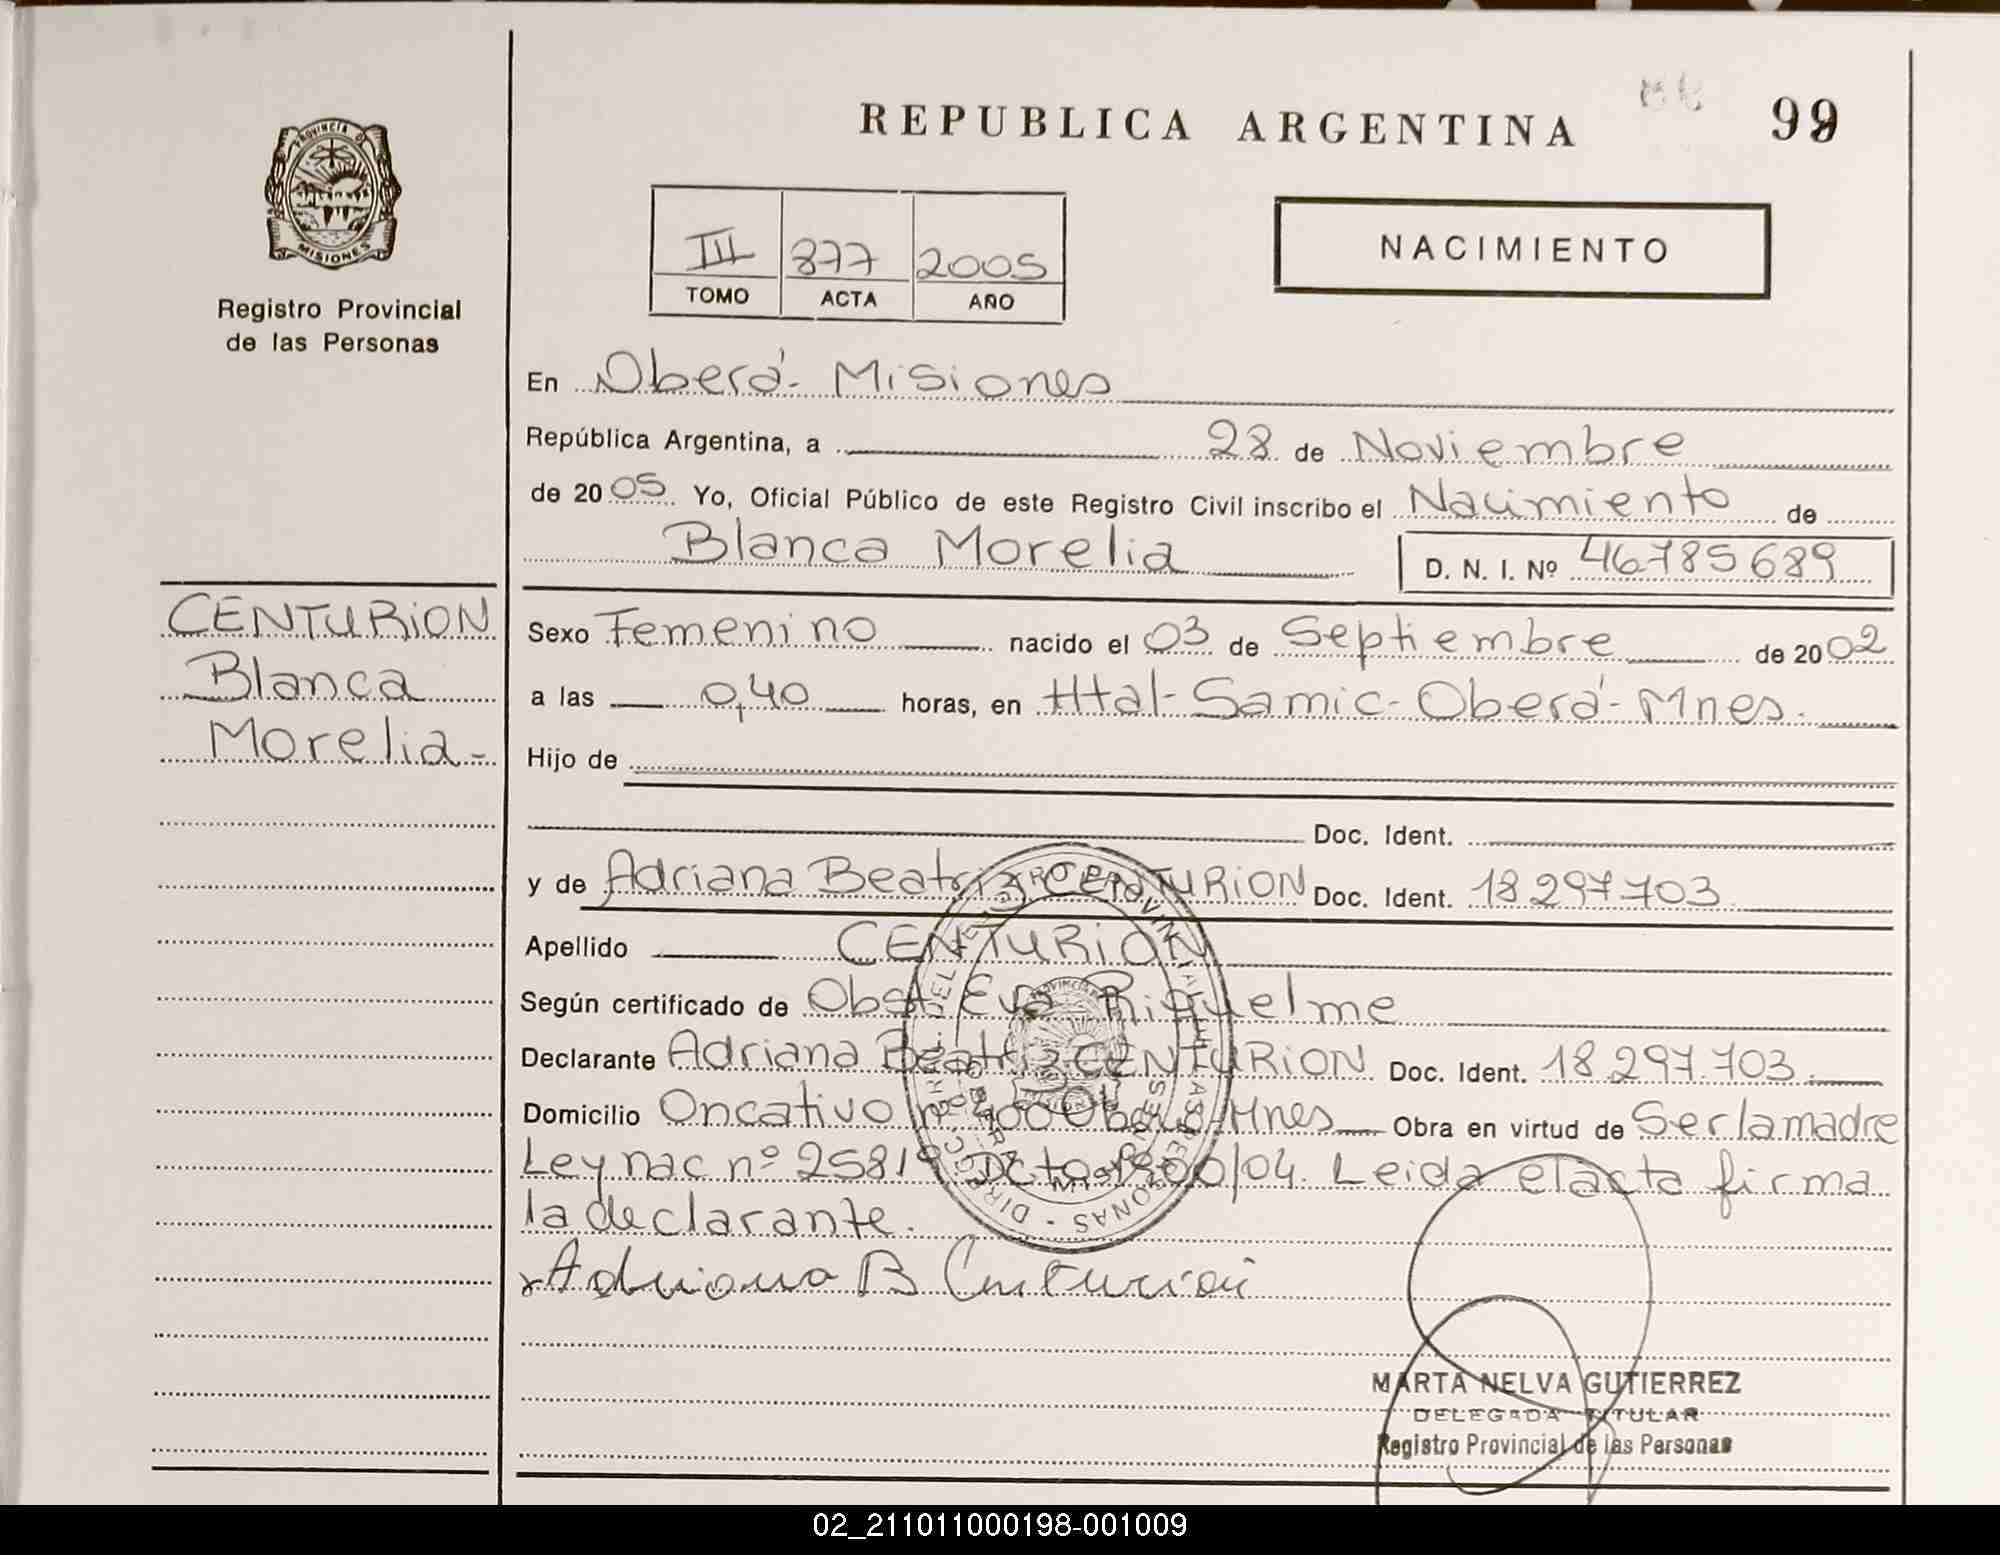 REPUBLICA ARGENTINA
99
PROVINCIA DE
MISIONES
Registro Provincial
de las Personas
III 877 2005
TOMO ACTA AÑO
NACIMIENTO
En Oberá- Misiones
República Argentina, a 28 de Noviembre
de 2005 Yo, Oficial Público de este Registro Civil inscribo el Nacimiento de
Blanca Morelia D. N. I. Nº 46785689
CENTURION
Blanca
Morelia-
Sexo Femenino nacido el 03 de Septiembre de 2002
a las 0,40 horas, en Htal- Samic- Oberá- Mnes.
Hijo de
Doc. Ident.
y de Adriana Beatriz CENTURION Doc. Ident. 18297703
Apellido CENTURION
Según certificado de Obst. Eva Riquelme
Declarante Adriana Beatriz CENTURION Doc. Ident. 18.297.703.
Domicilio Oncativo nº 400 Oberá Mnes Obra en virtud de Ser la madre
Ley nac nº 25819 Dcto 1200/04. Leida el acta firma
la declarante.
x Adriana B Centurion
MARTA NELVA GUTIERREZ
DELEGADA TITULAR
Registro Provincial de las Personas
02_211011000198-001009